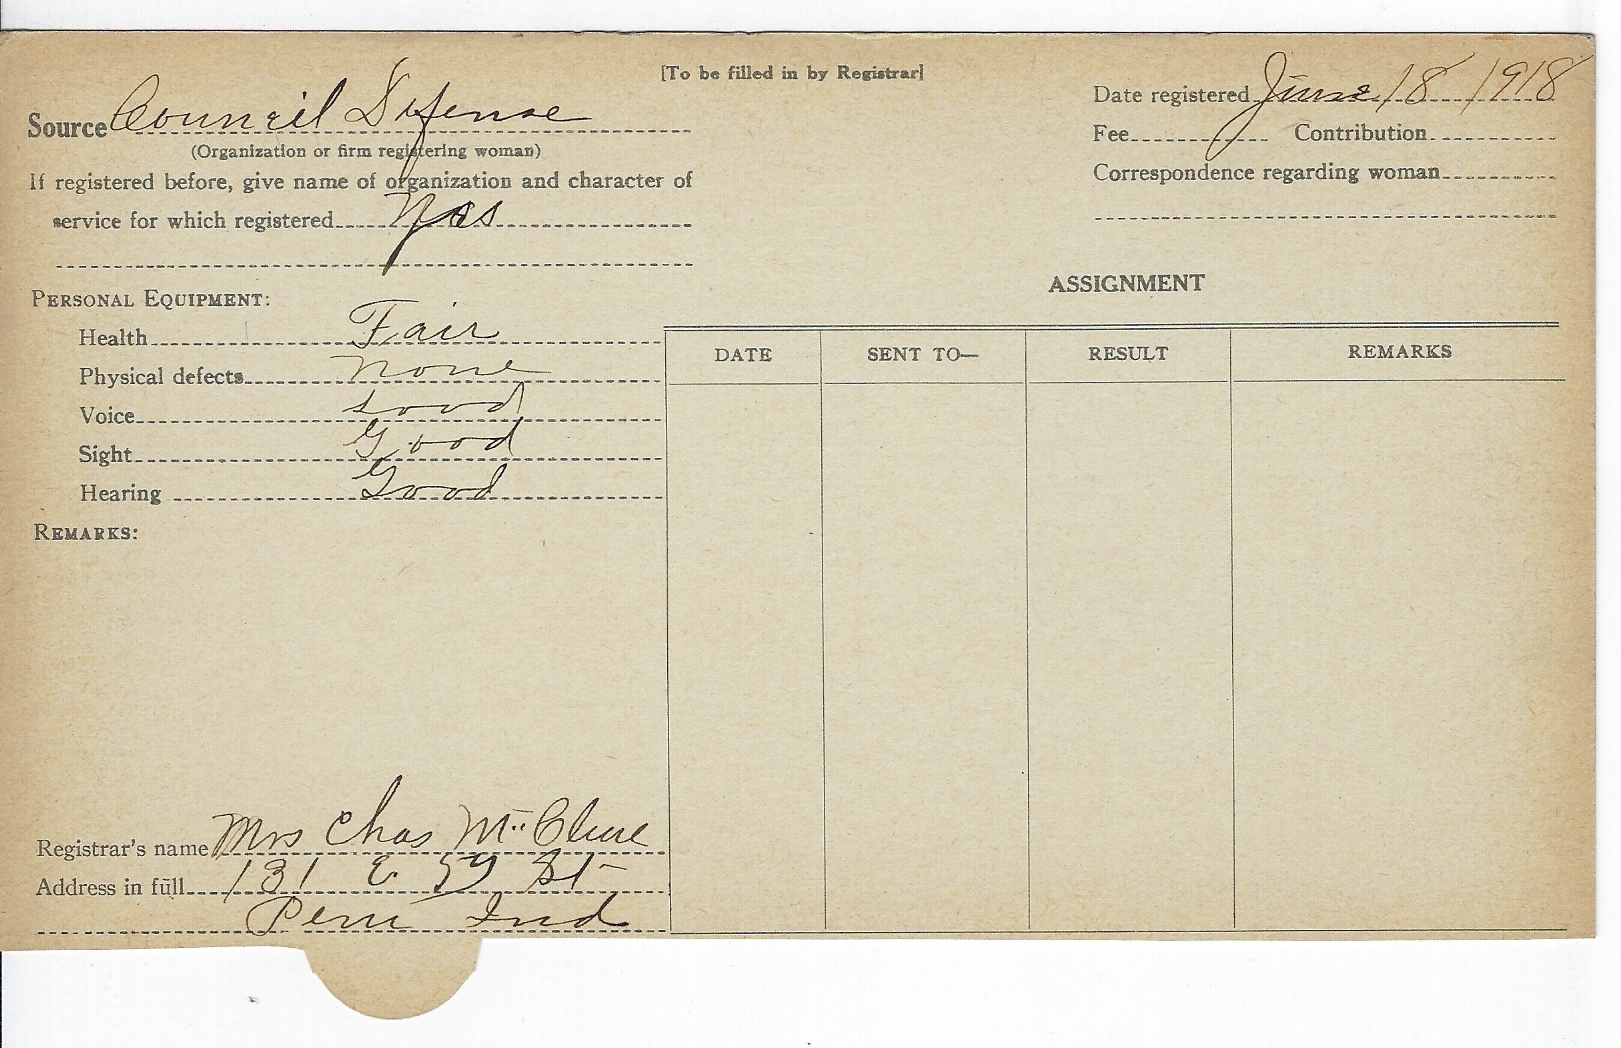 [To be filled in by Registrar]
Source Council Defense
(Organization or firm registering woman)
If registered before, give name of organization and character of
service for which registered Yes
Date registered June 18 1918
Fee Contribution
Correspondence regarding woman
PERSONAL EQUIPMENT:
Health Fair
Physical defects None
Voice Good
Sight Good
Hearing Good
REMARKS:
ASSIGNMENT
DATE SENT TO— RESULT REMARKS
Registrar's name Mrs Chas McClure
Address in full 131 E. St
Peru Ind